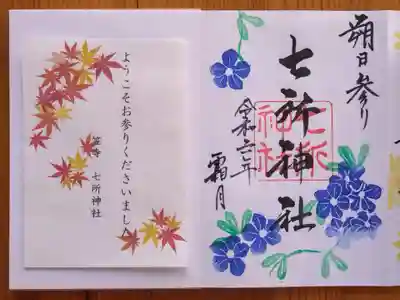 ようこそお参りくださいました
笠寺 七所神社
朔日参り
七所神社
令和六年
霜月
七所神社